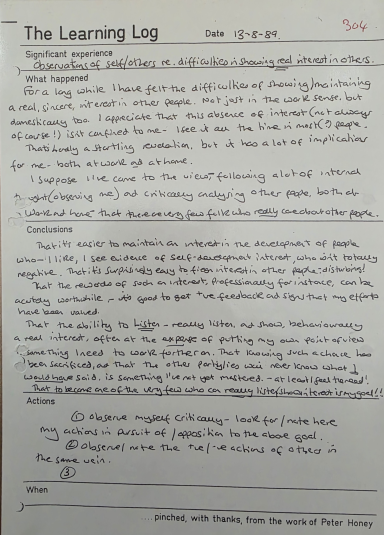 304
The Learning Log Date 13-8-89.
Significant experience
Observations of self/others re. difficulties in showing real interest in others.
What happened
For a long while I have felt the difficulties of showing/maintaining
a real, sincere, interest in other people. Not just in the work sense, but
domestically too. I appreciate that this absence of interest (not always
of course!) isn't confined to me - I see it all the time in most(?) people.
That's hardly a startling revelation, but it has a lot of implications
for me - both at work and at home.
I suppose I've come to the view, following a lot of internal
thought (observing me) and critically analysing other people, both at
work and home that there are very few folk who really care about other people.
Conclusions
That it's easier to maintain an interest in the development of people
who - I like, I see evidence of self-development interest, who isn't totally
negative. That it's surprisingly easy to fein interest in other people: disturbing!
That the rewards of such an interest, professionally for instance, can be
acutely worthwhile - it's good to get +ve feedback and signs that my efforts
have been valued.
That the ability to listen - really listen, and show, behaviourally
a real interest, often at the expense of putting my own point of view
is something I need to work further on. That knowing such a choice has
been sacrificed, and that the other party/ies will never know what I
would have said, is something I've not yet mastered - at least, I feel the need!
That to become one of the very few who can really listen/show interest is my goal!!
Actions
① observe myself critically - look for/note here
my actions in pursuit of/opposition to the above goal.
② observe/note the +ve/-ve actions of others in
the same vein.
③
When
.... pinched, with thanks, from the work of Peter Honey